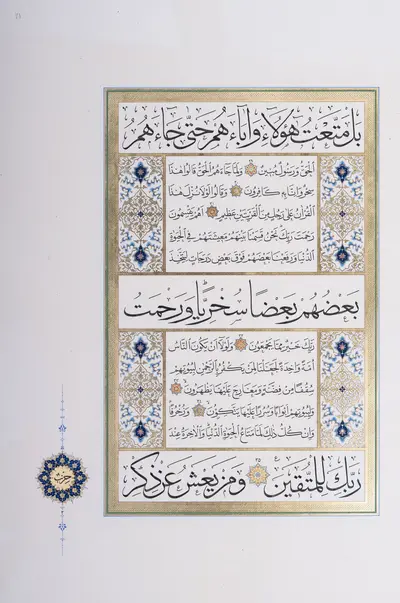 بَل مَتَّعتُ هٰؤُلاءِ وَآباءَهُم حَتّىٰ جاءَهُمُ
الحَقُّ وَرَسولٌ مُبينٌ وَلَمّا جاءَهُمُ الحَقُّ قالوا هٰذا
سِحرٌ وَإِنّا بِهِ كافِرونَ وَقالوا لَولا نُزِّلَ هٰذَا
القُرآنُ عَلىٰ رَجُلٍ مِنَ القَريَتَينِ عَظيمٍ أَهُم يَقسِمونَ
رَحمَتَ رَبِّكَ نَحنُ قَسَمنا بَينَهُم مَعيشَتَهُم فِي الحَيوٰةِ
الدُّنيا وَرَفَعنا بَعضَهُم فَوقَ بَعضٍ دَرَجاتٍ لِيَتَّخِذَ
بَعضُهُم بَعضًا سُخرِيًّا وَرَحمَتُ
رَبِّكَ خَيرٌ مِمّا يَجمَعونَ وَلَولا أَن يَكونَ النّاسُ
أُمَّةً واحِدَةً لَجَعَلنا لِمَن يَكفُرُ بِالرَّحمٰنِ لِبُيوتِهِم
سُقُفًا مِن فِضَّةٍ وَمَعارِجَ عَلَيها يَظهَرونَ
وَلِبُيوتِهِم أَبوابًا وَسُرُرًا عَلَيها يَتَّكِئونَ وَزُخرُفًا
وَإِن كُلُّ ذٰلِكَ لَمّا مَتاعُ الحَيوٰةِ الدُّنيا وَالآخِرَةُ عِندَ
رَبِّكَ لِلمُتَّقينَ وَمَن يَعشُ عَن ذِكرِ
حزب